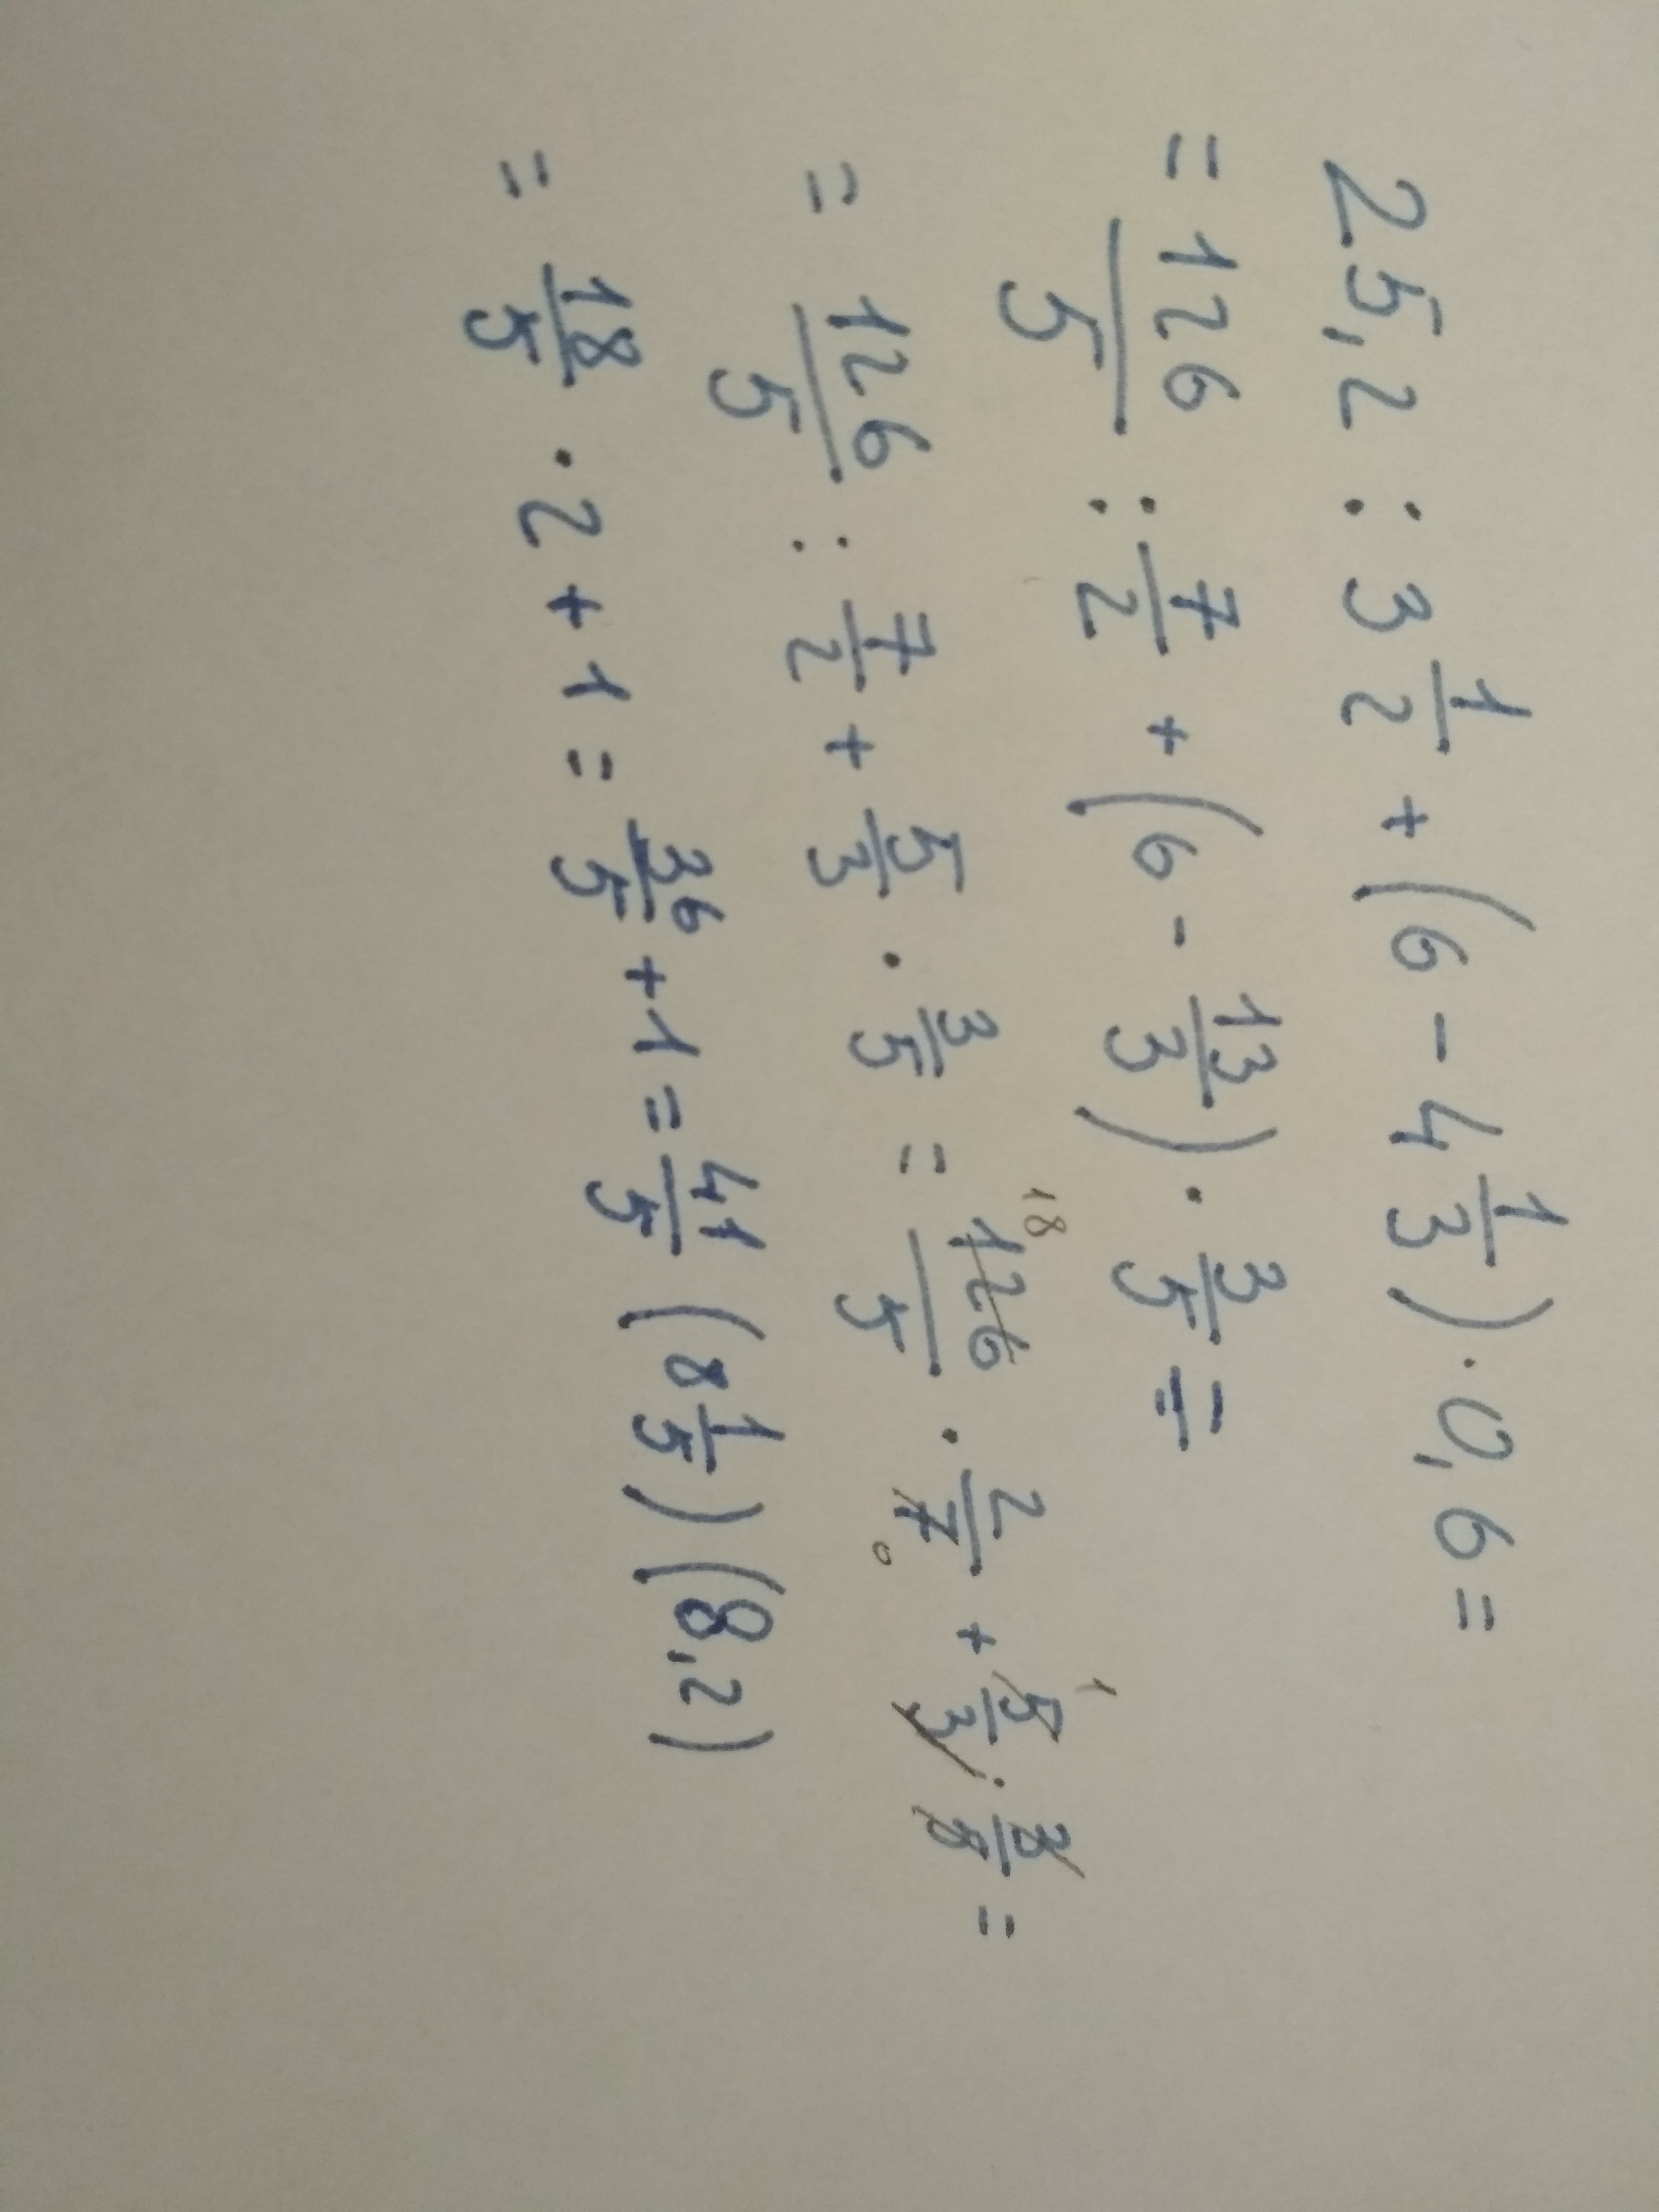 25,2 : 3 1/2 + (6 - 4 1/3) · 0,6 =
= 126/5 : 7/2 + (6 - 13/3) · 3/5 =
= 126/5 : 7/2 + 5/3 · 3/5 = 18 126/5 · 2/7 0 + 1 5/3 · 3/5 =
= 18/5 · 2 + 1 = 36/5 + 1 = 41/5 (8 1/5) (8,2)